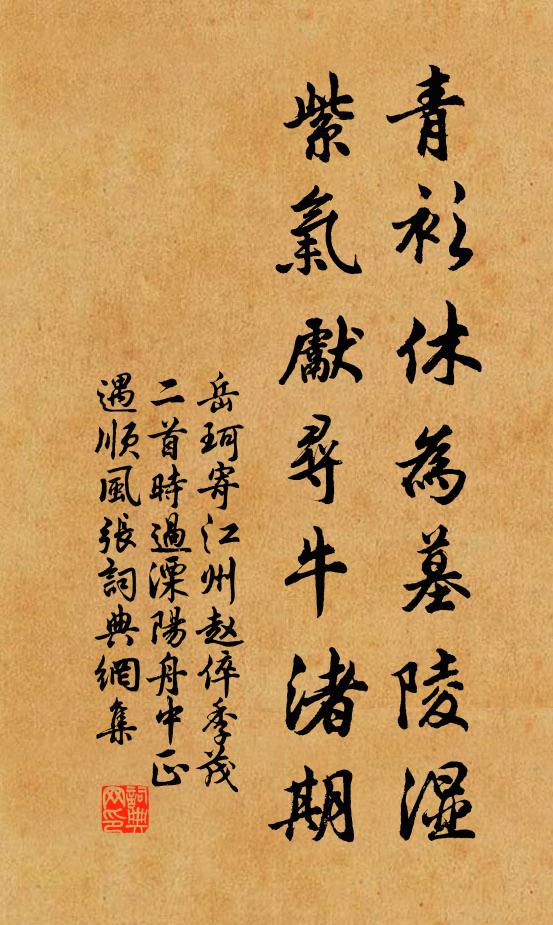 青衫休為墓陵濕
紫氣獻尋牛渚期
岳珂寄江州赵倅季茂
二首時過溧陽舟中正
遇順風張詞典網集
詞典
网印